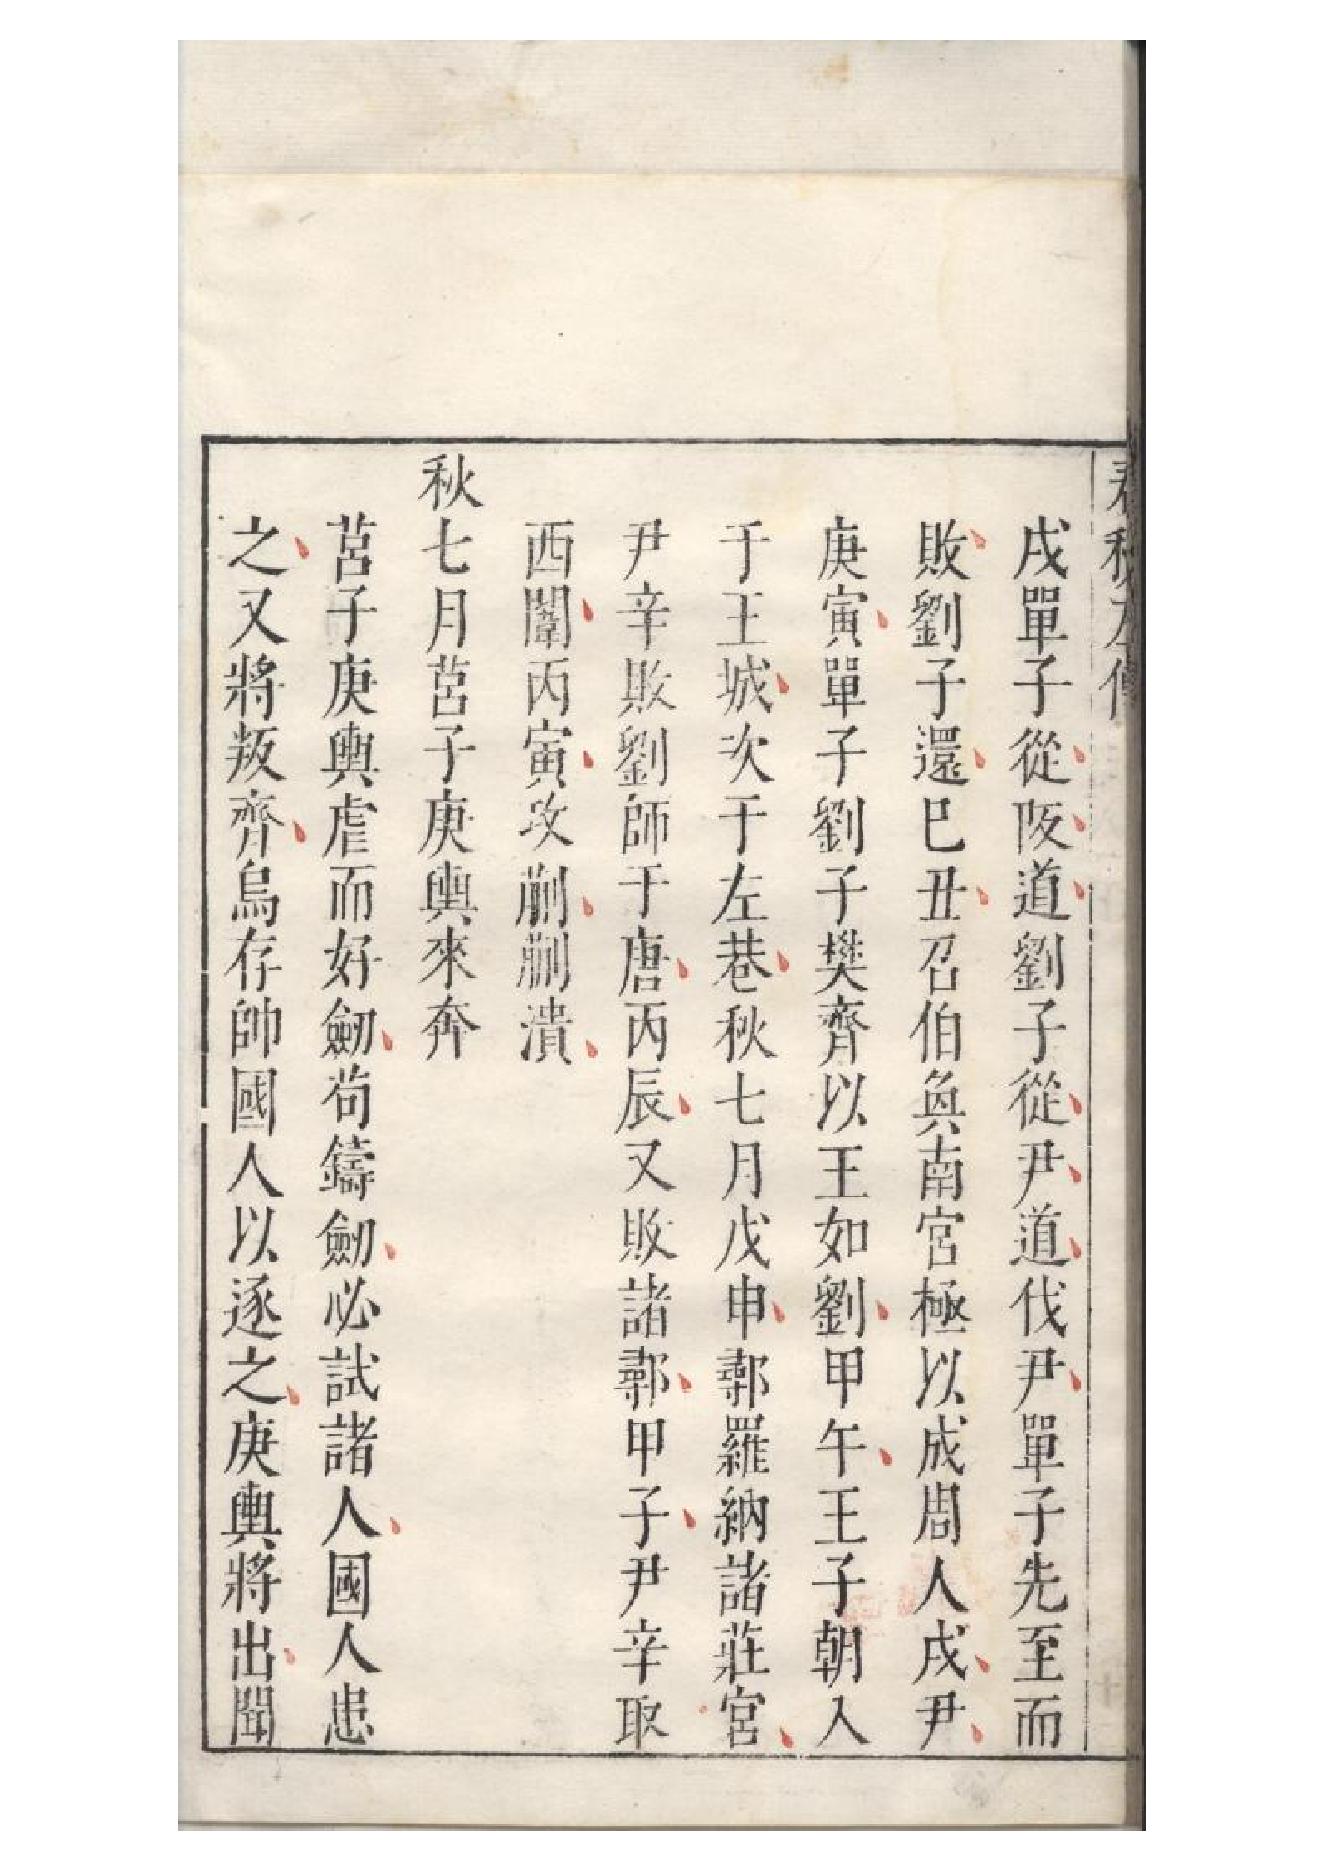 春秋左傳
戌單子從阪道劉子從尹道伐尹單子先至而
敗劉子還巳丑召伯奐南宮極以成周人戌尹
庚寅單子劉子樊齊以王如劉甲午王子朝入
于王城次于左巷秋七月戊申鄩羅納諸莊宮
尹辛敗劉師于唐丙辰又敗諸鄩甲子尹辛取
西闈丙寅攻蒯蒯潰
秋七月莒子庚輿來奔
莒子庚輿虐而好劒苟鑄劒必試諸人國人患
之又將叛齊烏存帥國人以逐之庚輿將出聞